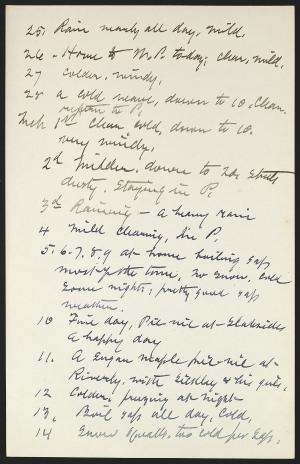 25 Rain nearly all day, mild.
26 - Home to W.P. today; clear, mild.
27 colder, windy,
28 a cold wave, down to 10, clear.
return to P.
Mch 1st Clear, cold, down to 10.
very windy,
2d milder, down to 20, streets
dusty. Staying in P.
3d Raining - a heavy rain
4 mild clearing, in P.
5.6.7.8.9 at home boiling sap
most of the time, no snow, cold
some nights; pretty good sap
weather.
10 Fine day, Pic-nic at Slabsides
A happy day
11. A sugar maple pic-nic at
Riverby, with & his girls,
12 Colder, freezing at night
13. Boil sap all day, Cold,
14 Snow squalls, too cold for sap,